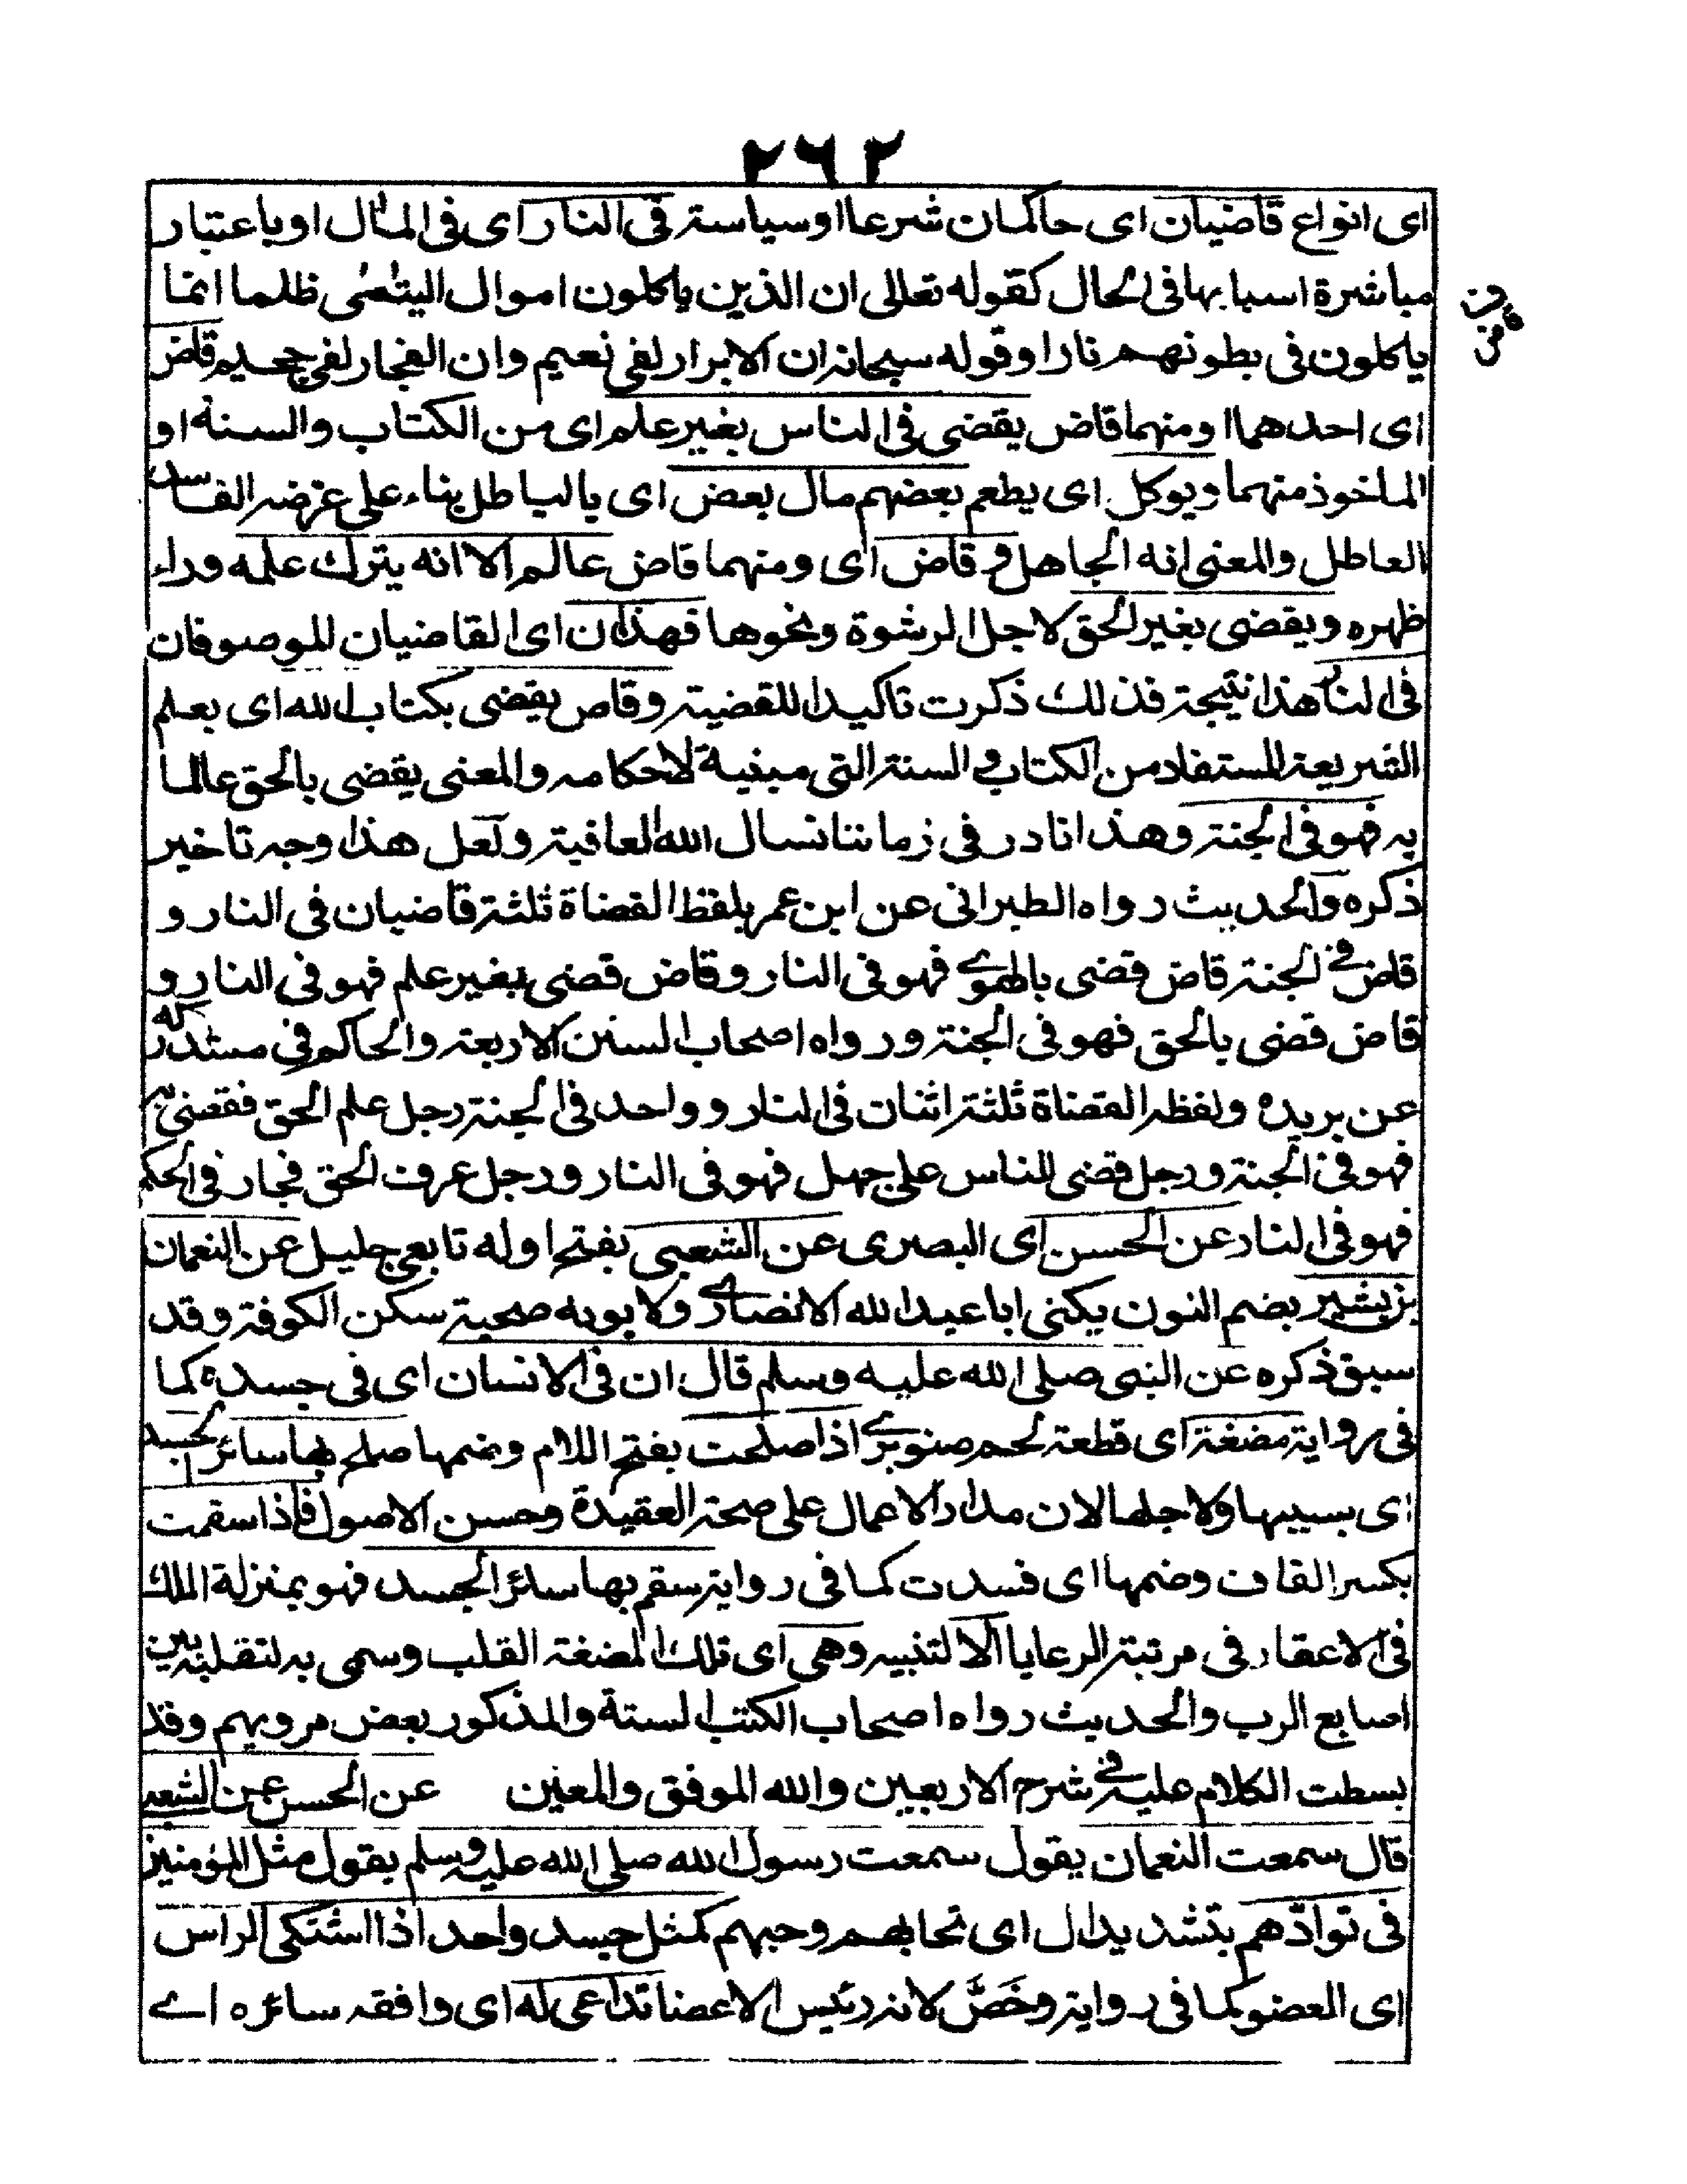 ٢٦٢
اى انواع قاضيان اى حاكمان شرعا او سياسة فى النار اى فى المال او باعتبار
مباشرة اسبابها فى الحال كقوله تعالى ان الذين ياكلون اموال اليتمى ظلما انما
ياكلون فى بطونهم نارا وقوله سبحانه ان الابرار لفى نعيم وان الفجار لفى جحيم قاض
اى احدهما او منهما قاض يقضى فى الناس بغير علم اى من الكتاب والسنة او
الماخوذ منهما ويوكل اى يطعم بعضهم مال بعض اى بالباطل بناء على غرضه الفاسد
العاطل والمعنى انه الجاهل وقاض اى ومنهما قاض عالم الا انه يترك علمه وراء
ظهره ويقضى بغير الحق لاجل الرشوة ونحوها فهذان اى القاضيان للموصوفان
فى النار هذا نتيجة فذلك ذكرت تاكيدا للقضية وقاص يقضى بكتاب الله اى بعلم
الشريعة المستفاد من الكتاب والسنة التى مبنية لاحكامه والمعنى يقضى بالحق عالما
به فهو فى الجنة وهذا نادر فى زماننا نسال الله العافية ولعل هذا وجه تاخير
ذكره والحديث رواه الطبرانى عن ابن عمر بلفظ القضاة ثلثة قاضيان فى النار و
قاض فى الجنة قاض قضى بالهوى فهو فى النار وقاض قضى بغير علم فهو فى النار و
قاض قضى بالحق فهو فى الجنة ورواه اصحاب السنن الاربعة والحاكم فى مستدركه
عن بريده ولفظه القضاة ثلثة اثنان فى النار وواحد فى الجنة رجل علم الحق فقضى به
فهو فى الجنة ورجل قضى للناس على جهل فهو فى النار ورجل عرف الحق فجار فى الحكم
فهو فى النار عن الحسن اى البصرى عن الشعبى بفتح اوله تابعى جليل عن النعمان
بن بشير بضم النون يكنى ابا عبد الله الانصارى ولابويه صحبة سكن الكوفة وقد
سبق ذكره عن النبى صلى الله عليه وسلم قال ان فى الانسان اى فى جسده كما
فى رواية مضغة اى قطعة لحم صنوبرى اذا صلحت بفتح اللام وضمها صلح بها سائر الجسد
اى بسببها ولاجلها لان مدار الاعمال على صحة العقيدة وحسن الاصول فاذا سقمت
بكسر القاف وضمها اى فسدت كما فى رواية سقم بها سائر الجسد فهو بمنزلة الملك
فى الاعقار فى مرتبة الرعايا الا لتنبيه وهى اى تلك المضغة القلب وسمى به لتقلبه بين
اصابع الرب والحديث رواه اصحاب الكتب الستة والمذكور بعض مرويهم وقد
بسطت الكلام عليه فى شرح الاربعين والله الموفق والمعين عن الحسن عن الشعبى
قال سمعت النعمان يقول سمعت رسول الله صلى الله عليه وسلم يقول مثل المؤمنين
فى توادّهم بتشديد دال اى تحابهم وحبهم كمثل جسد واحد اذا اشتكى الراس
اى العضو كما فى رواية وخَصَّ لانه رئيس الاعضا تداعى له اى وافقه سائره اے